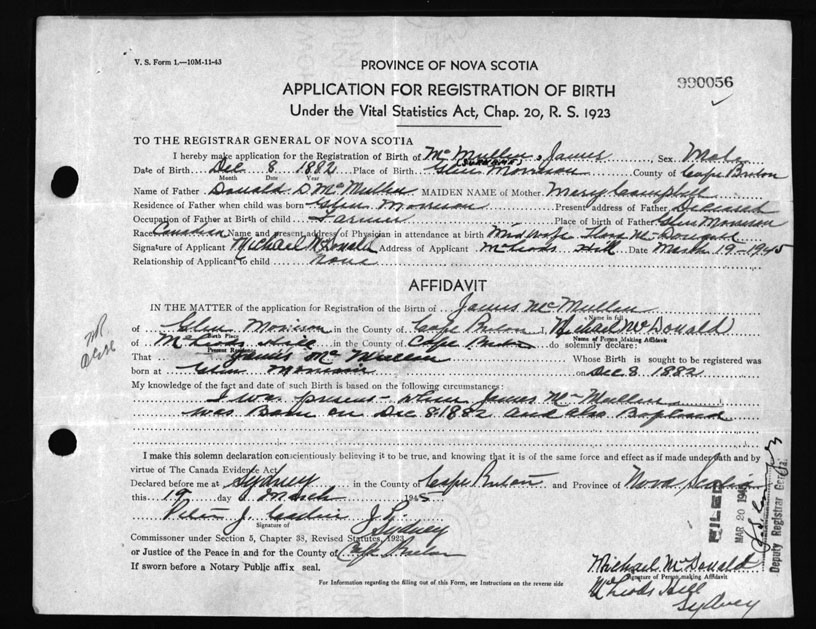 V. S. Form 1.—10M-11-43
PROVINCE OF NOVA SCOTIA
990056
APPLICATION FOR REGISTRATION OF BIRTH
Under the Vital Statistics Act, Chap. 20, R. S. 1923
TO THE REGISTRAR GENERAL OF NOVA SCOTIA
I hereby make application for the Registration of Birth of McMullen, James Sex Male
(SURNAME)
Date of Birth Dec 8 1882 Place of Birth Glen Morrison County of Cape Breton
Month Date Year
Name of Father Donald D McMullen MAIDEN NAME of Mother Mary Campbell
Residence of Father when child was born Glen Morrison Present address of Father Deceased
Occupation of Father at Birth of child Farmer Place of birth of Father Glen Morrison
Race Canadian Name and present address of Physician in attendance at birth Midwife Flora McDougall
Signature of Applicant Michael McDonald Address of Applicant McLeods Hill Date March 19-1945
Relationship of Applicant to child None
AFFIDAVIT
IN THE MATTER of the application for Registration of the Birth of James McMullen
Name in full
of Glen Morrison in the County of Cape Breton I, Michael McDonald
Birth Place Name of Person Making Affidavit
of McLeods Hill in the County of Cape Breton do solemnly declare:
Present Residence
That James McMullen Whose Birth is sought to be registered was
born at Glen Morrison on Dec 8 1882
My knowledge of the fact and date of such Birth is based on the following circumstances:
I was present when James McMullen
was Born on Dec 8 1882 and also Baptised
I make this solemn declaration conscientiously believing it to be true, and knowing that it is of the same force and effect as if made under oath and by
virtue of The Canada Evidence Act.
Declared before me at Sydney in the County of Cape Breton and Province of Nova Scotia
this 19 day of March 1945
Peter J. J.P.
Signature of
Sydney
Commissioner under Section 5, Chapter 38, Revised Statutes, 1923
or Justice of the Peace in and for the County of Cape Breton
If sworn before a Notary Public affix seal.
FILED
MAR 20 194
Deputy Registrar General.
Michael McDonald
Signature of Person making Affidavit
McLeods Hill
Sydney
For Information regarding the filling out of this Form, see Instructions on the reverse side